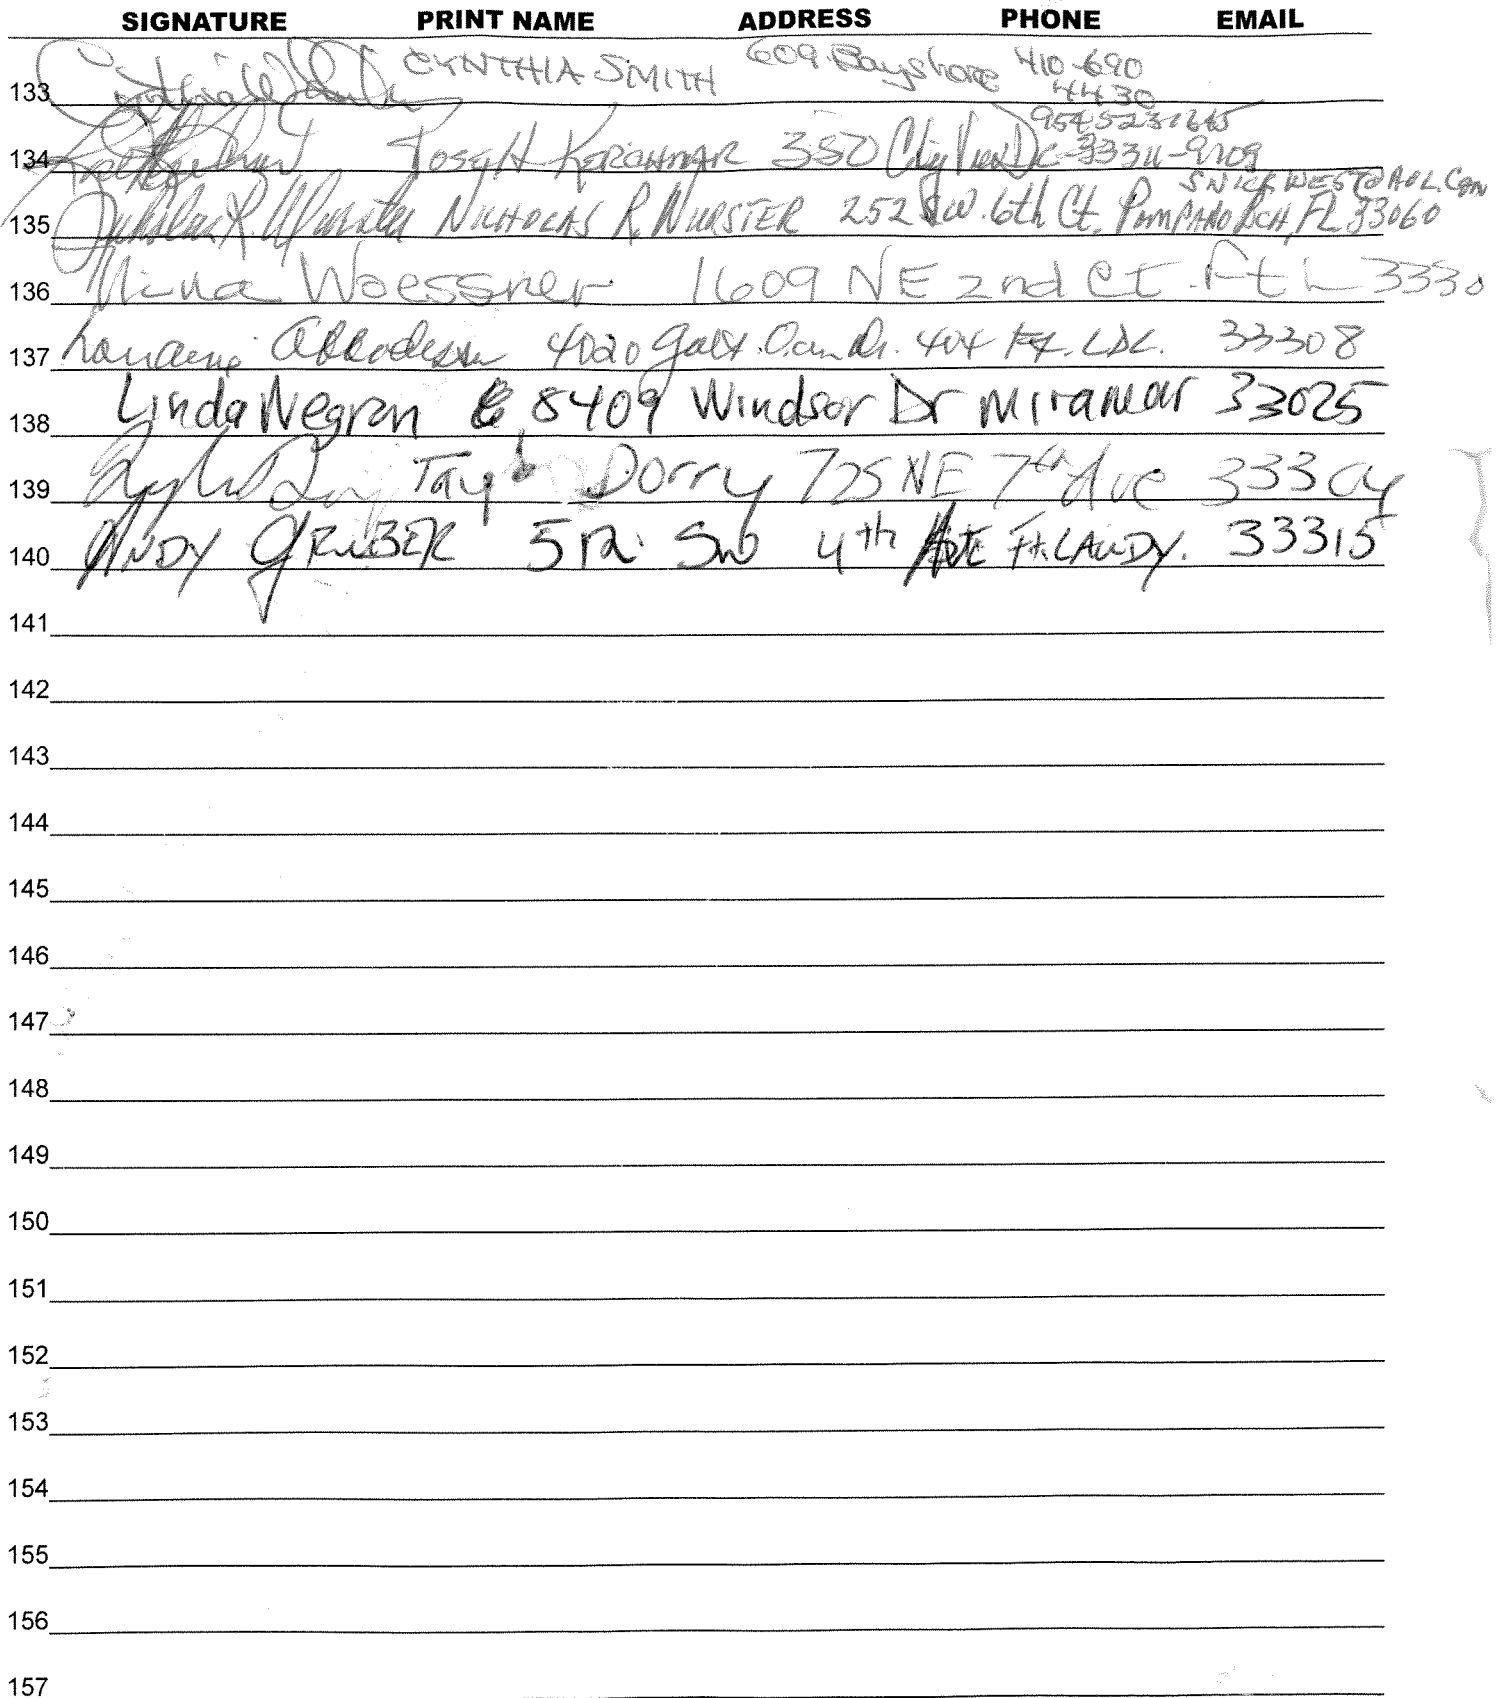 SIGNATURE PRINT NAME ADDRESS PHONE EMAIL
133 CYNTHIA SMITH 609 Bayshore 410-690
4430
9545231645
134 Joseph 350 City View Dr 33311-9109
SNICK.WEST@AOL.Com
135 NICHOLAS R. WURSTER 252 SW. 6th Ct. POMPANO BCH, FL 33060
136 Nina Woessner 1609 NE 2nd Ct. Ft L 3330
137 4020 Galt Ocean Dr. 404 Ft. LDL. 33308
138 Linda Negron 8409 Windsor Dr Miramar 33025
139 Dorry 725 NE 7th Ave 33304
140 ANDY GRUBER 512 SW 4th AVE FT. LAUDY. 33315
141
142
143
144
145
146
147
148
149
150
151
152
153
154
155
156
157